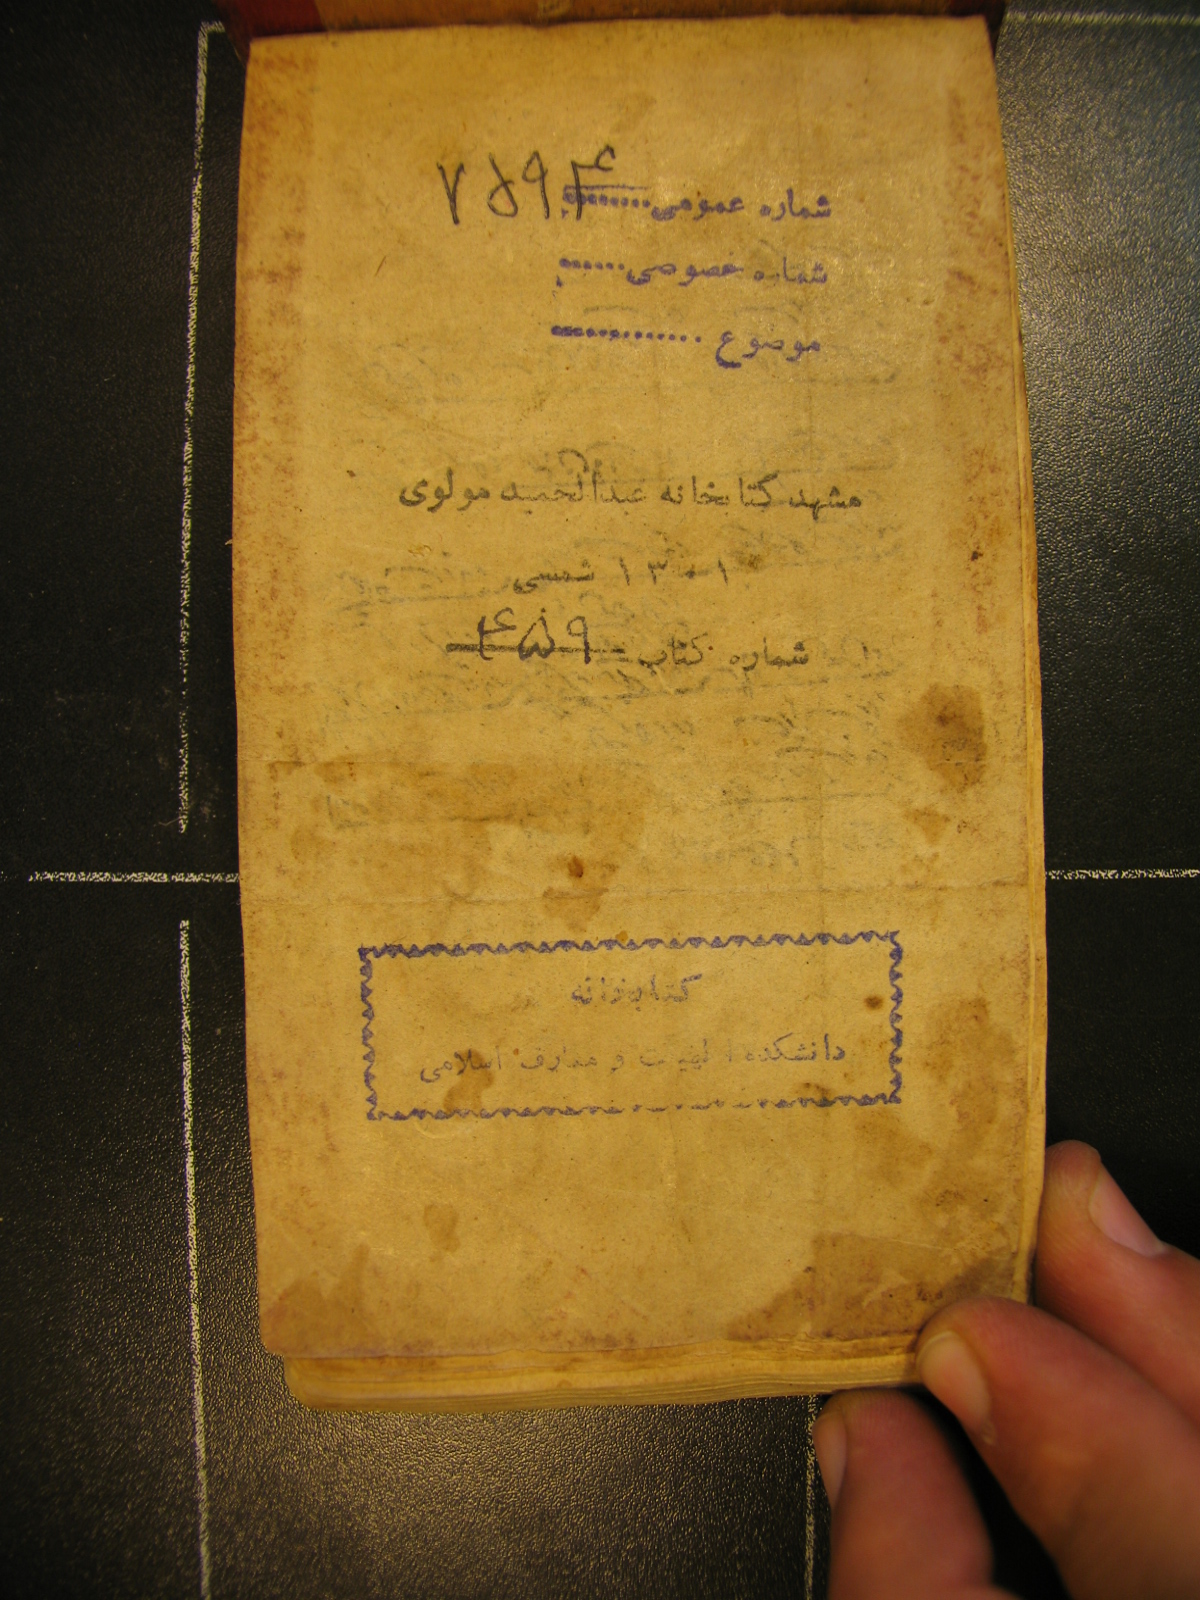 شماره عمومی ........ ۷۵۹۴
شماره خصوصی ........
موضوع ............
مشهد کتابخانه عبدالحمید مولوی
۱۳۰۱ شمسی
شماره کتاب ۴۵۹
کتابخانه
دانشکده الهیات و معارف اسلامی